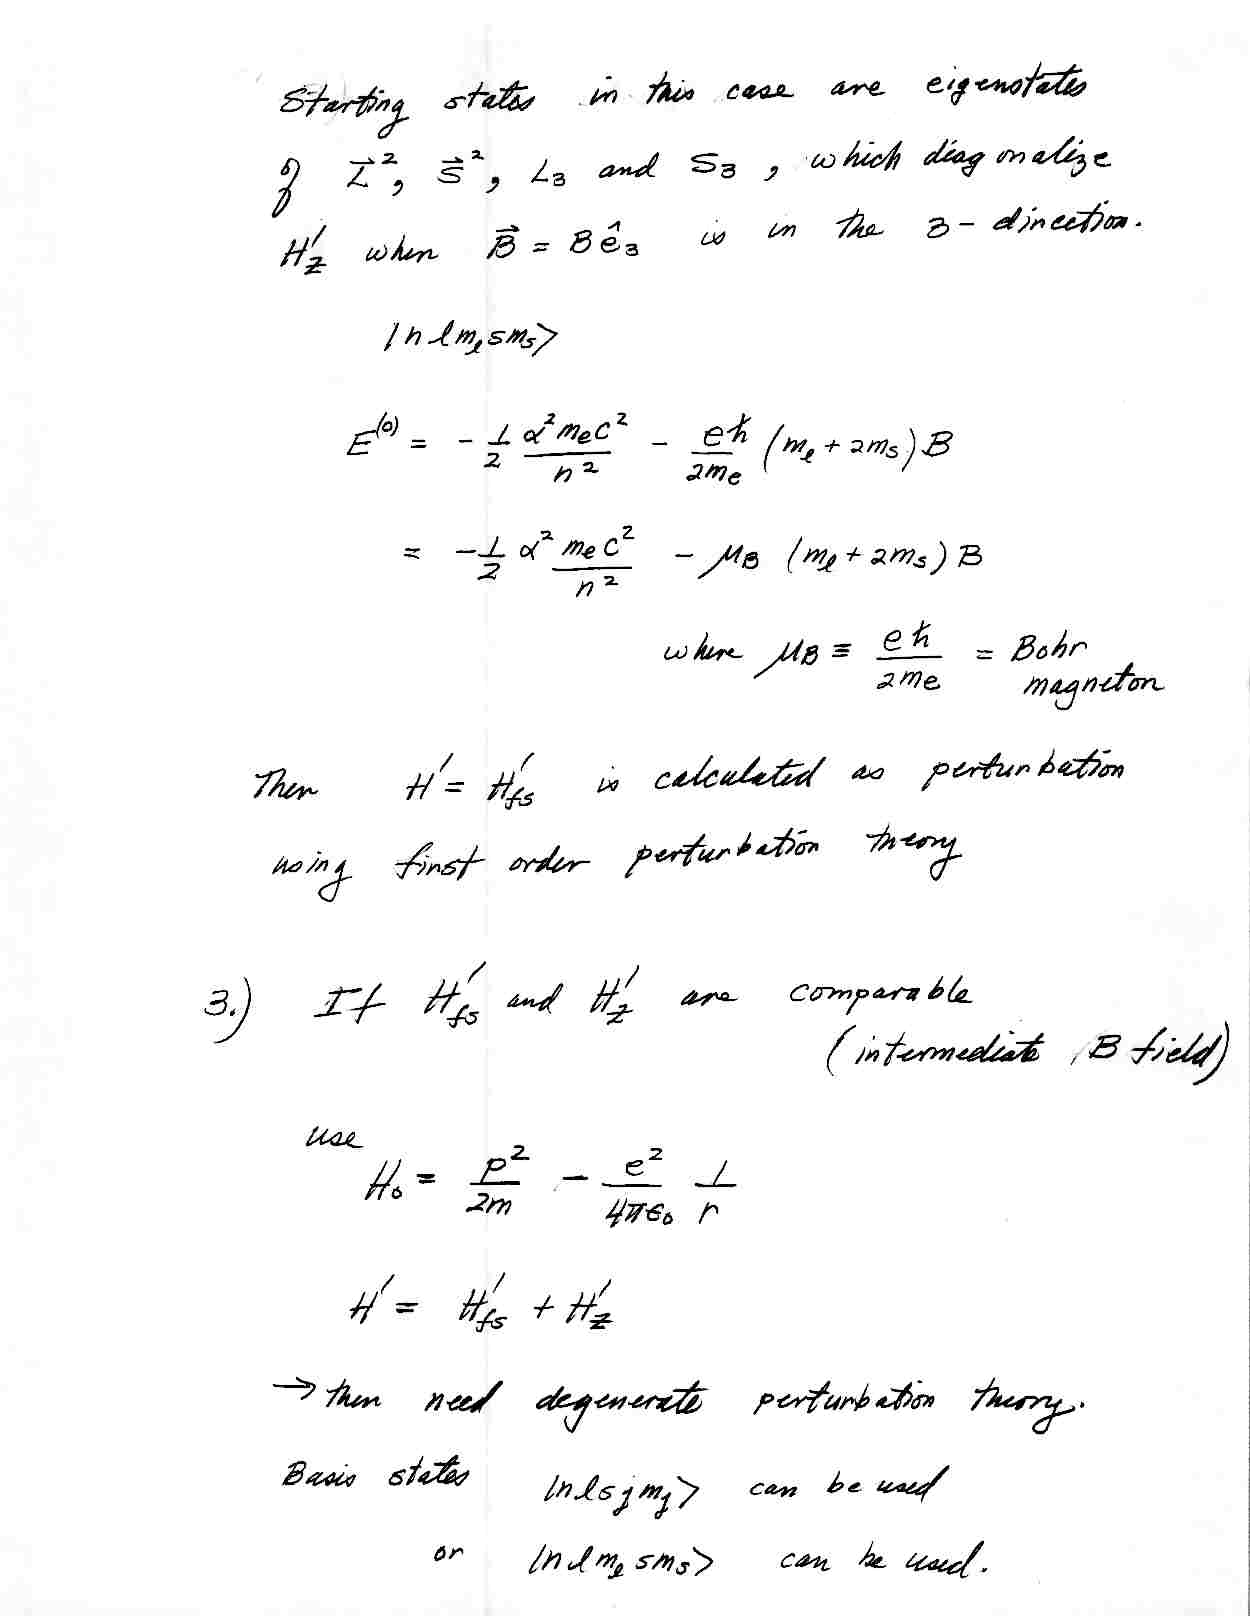 Starting states in this case are eigenstates
of L⃗², S⃗², L₃ and S₃, which diagonalize
H'_Z when B⃗ = B ê₃ is in the 3-direction.
|n l m_l s m_s>
E^(0) = - 1/2 α² m_e c²/n² - eħ/2m_e (m_l + 2m_s) B
= - 1/2 α² m_e c²/n² - μ_B (m_l + 2m_s) B
where μ_B ≡ eħ/2m_e = Bohr
magneton
Then H' = H'_fs is calculated as perturbation
using first order perturbation theory
3.) If H'_fs and H'_Z are comparable
(intermediate B field)
use
H₀ = p²/2m - e²/4πε₀ 1/r
H' = H'_fs + H'_Z
→ then need degenerate perturbation theory.
Basis states |n l s j m_j> can be used
or |n l m_l s m_s> can be used.